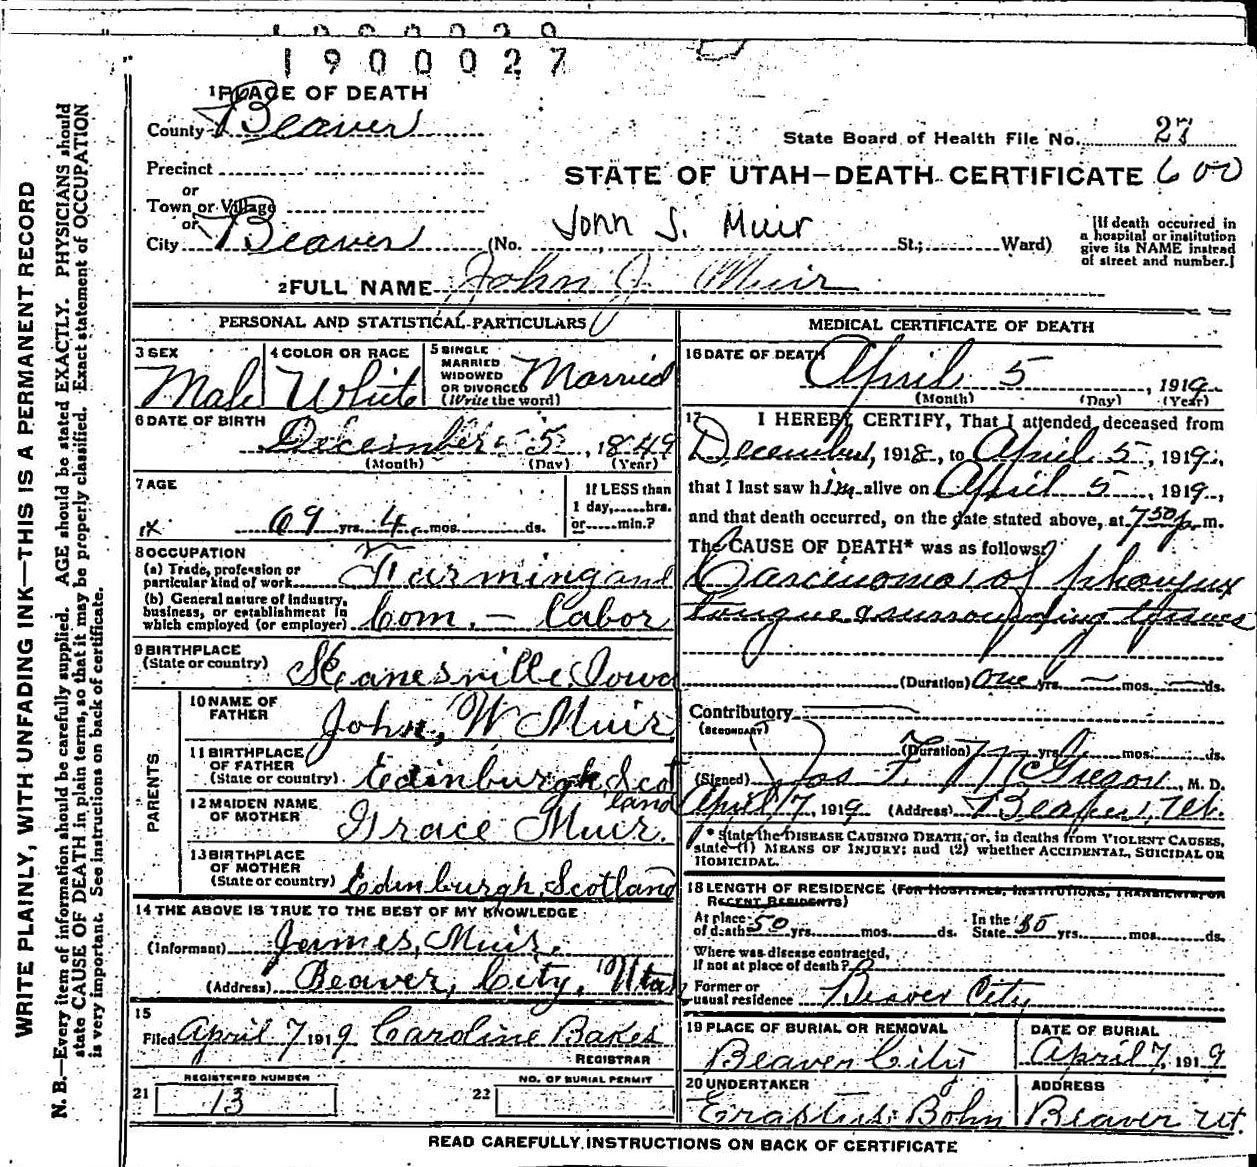 1900027
1 PLACE OF DEATH
County Beaver
State Board of Health File No. 27
Precinct
STATE OF UTAH—DEATH CERTIFICATE 600
or
Town or Village
or
City Beaver (No. John J. Muir St.; Ward)
[If death occurred in
a hospital or institution
give its NAME instead
of street and number.]
2 FULL NAME John J. Muir
PERSONAL AND STATISTICAL PARTICULARS
3 SEX Male
4 COLOR OR RACE White
5 SINGLE
MARRIED
WIDOWED
OR DIVORCED
(Write the word) Married
6 DATE OF BIRTH
December 5, 1849
(Month) (Day) (Year)
7 AGE
69 yrs. 4 mos. ds.
If LESS than
1 day, hrs.
or min.?
8 OCCUPATION
(a) Trade, profession or
particular kind of work Farming and
(b) General nature of industry,
business, or establishment in
which employed (or employer) Com. — Labor
9 BIRTHPLACE
(State or country) Kanesville, Iowa
PARENTS
10 NAME OF
FATHER John, W Muir
11 BIRTHPLACE
OF FATHER
(State or country) Edinburgh Scotland
12 MAIDEN NAME
OF MOTHER Grace Muir.
13 BIRTHPLACE
OF MOTHER
(State or country) Edinburgh, Scotland
14 THE ABOVE IS TRUE TO THE BEST OF MY KNOWLEDGE
(Informant) James, Muir,
(Address) Beaver, City, Utah
15
Filed April 7 1919 Caroline Bakes
REGISTRAR
21 REGISTERED NUMBER
13
22 NO. OF BURIAL PERMIT
MEDICAL CERTIFICATE OF DEATH
16 DATE OF DEATH
April 5, 1919
(Month) (Day) (Year)
17 I HEREBY CERTIFY, That I attended deceased from
December, 1918, to April 5, 1919,
that I last saw him alive on April 5, 1919,
and that death occurred, on the date stated above, at 7 50 p. m.
The CAUSE OF DEATH* was as follows:
Carcinoma of pharynx
tongue & surrounding tissues
(Duration) one yrs. — mos. — ds.
Contributory
(SECONDARY)
(Duration) yrs. mos. ds.
(Signed) Jos F. McGregor, M. D.
April 7, 1919 (Address) Beaver, Ut.
* State the DISEASE CAUSING DEATH, or, in deaths from VIOLENT CAUSES,
state (1) MEANS OF INJURY; and (2) whether ACCIDENTAL, SUICIDAL OR
HOMICIDAL.
18 LENGTH OF RESIDENCE (FOR HOSPITALS, INSTITUTIONS, TRANSIENTS, OR
RECENT RESIDENTS)
At place
of death 50 yrs. mos. ds.
In the
State 50 yrs. mos. ds.
Where was disease contracted,
if not at place of death?
Former or
usual residence Beaver City
19 PLACE OF BURIAL OR REMOVAL
Beaver City
DATE OF BURIAL
April 7, 1919
20 UNDERTAKER
Erastus Bohn
ADDRESS
Beaver Ut.
READ CAREFULLY INSTRUCTIONS ON BACK OF CERTIFICATE
WRITE PLAINLY, WITH UNFADING INK—THIS IS A PERMANENT RECORD
N. B.—Every item of information should be carefully supplied. AGE should be stated EXACTLY. PHYSICIANS should
state CAUSE OF DEATH in plain terms, so that it may be properly classified. Exact statement of OCCUPATION
is very important. See instructions on back of certificate.